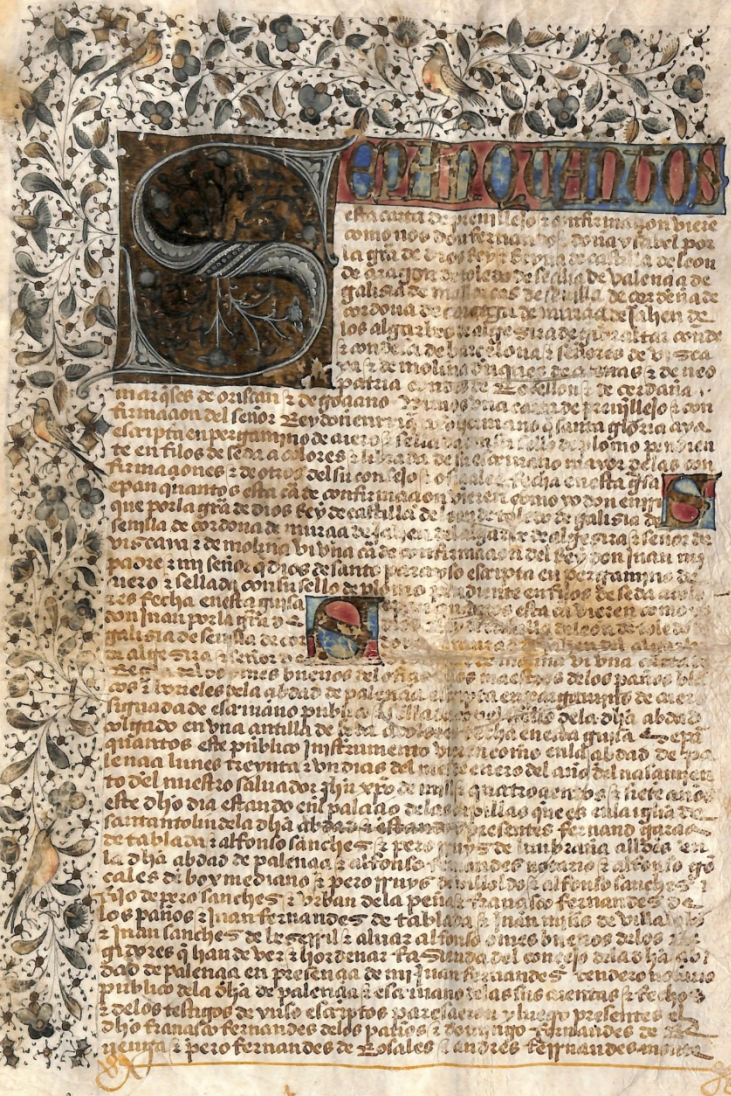 SEPAN QUANTOS
esta carta de preuillejo e confirmaçion viere
como nos don fernando e doña ysabel por
la grã de dios Rey e Reyna de castilla de leon
de aragon de toledo de seçilia de valençia de
galisia de mallorcas de seuilla de cerdeña de
cordoua de corçega de murçia de jahen de
los algarbes de algesira de gibraltar conde
e condesa de barçelona e señores de viscaya
e de molina duques de atenas e de neo
patria condes de Rosellon e de cerdaña
marqses de oristan e de goçiano vimos vna carta de preuillejo e con
firmaçion del señor Rey don enrriq nro hermano q santa gloria aya
escripta en pergamino de cuero e sellada con su sello de plomo pendien
te en filos de seda a colores e librada de su escriuano mayor delas con
firmaçiones e de otros del su consejo e ofiçiales fecha en esta guisa
Sepan quantos esta cã de confirmaçion vieren como yo don enrriq
que por la grã de dios Rey de castilla de leon de toledo de galisia de
seuilla de cordoua de murçia de jahen del algarbe de algesira e señor de
viscaya e de molina vi vna cã de confirmaçion del Rey don Juan mi
padre e mi señor q dios de santo parayso escripta en pergamino de
cuero e sellada con su sello de plomo pendiente en filos de seda a colo
res fecha en esta guisa Sepan quantos esta cã vieren como yo
don Juan por la grã de Rey de castilla de leon de toledo
galisia de seuilla de cor de jahen del algarbe
de algesira e señor de de molina vi vna carta
delos omes buenos del ofiçio los maestros delos paños bla
cos e bureles dela abdad de palençia escripta en pargamino de cuero
signada de escriuano publico e sellada con del sello dela dha abdad
colgado en vna çintilla de seda fecha en esta guisa Sepan
quantos este publico Instrumento vieren como enla abdad de pa
lençia lunes treynta e vn dias del mes de enero del año del nasçimien
to del nuestro saluador jhu xpo de mill e quatroçientos e siete años
este dho dia estando enl palaçio delas capillas que es enla iglia de
santantolin dela dha abdad e estando y presentes fernand garçia
de tablada e alfonso sanches e pero rruys de lunbraña allds en
la dha abdad de palençia e alfonso ferrandes notario e alfonso gõ
çales de boymediano e pero rruys de villoldo e alfonso sanches
fijo de pero sanches e vrban dela peña e françisco fernandes de
los paños e Juan fernandes de tablada e Juan niño de villalobos
e Juan sanches de e aluar alfonso omes buenos delos Re
gidores q han de ver e hordenar fasienda del conçejo dela dha çib
dad de palençia en presençia de mi Juan fernandes tendero notario
publico dela dha de palençia e escriuano delas sus cuentas e fechos
e delos testigos de yuso escriptos paresçieron y luego presentes el
dho françisco fernandes delos paños e domingo fernandes de
e pero fernandes de Rosales e andres ferrnandes